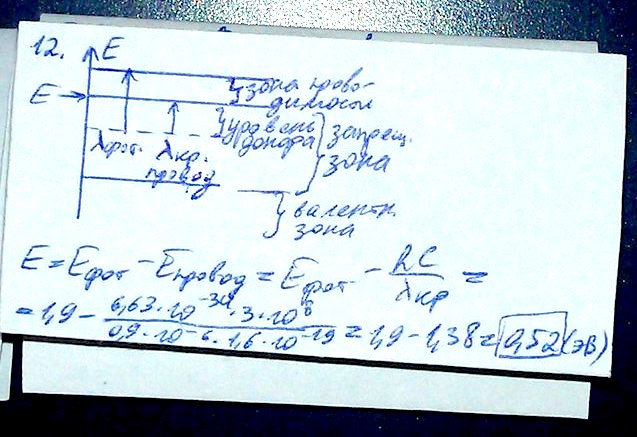 12. E
E
зона прово-
димости
уровень
донора
запрещ.
зона
λфот. λкр.
провод
валентн.
зона
E = Eфот − Eпровод = Eфот − hc/λкр =
= 1,9 − 6,63·10^-34·3·10^8/0,9·10^-6·1,6·10^-19 = 1,9 − 1,38 = 0,52 (эВ)